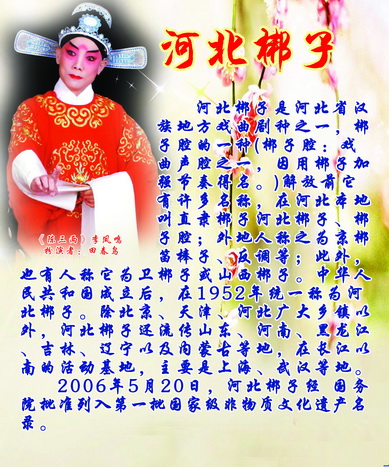 河北梆子
河北梆子是河北省汉
族地方戏曲剧种之一，梆
子腔的一种(梆子腔：戏
曲声腔之一，因用梆子加
强节奏得名。)解放前它
有许多名称，在河北本地
叫直隶梆子河北梆子、梆
子腔；外地人称之为京梆
笛棒子、反调等；此外，
也有人称它为卫梆子或山西梆子。中华人
民共和国成立后，在1952年统一称为河
北梆子。除北京、天津、河北广大乡镇以
外，河北梆子还流传山东、河南、黑龙江
、吉林、辽宁以及内蒙古等地，在长江以
南的活动基地，主要是上海、武汉等地。
2006年5月20日，河北梆子经 国务
院批准列入第一批国家级非物质文化遗产名
录。
《陈三两》李凤鸣
扮演者：田春鸟